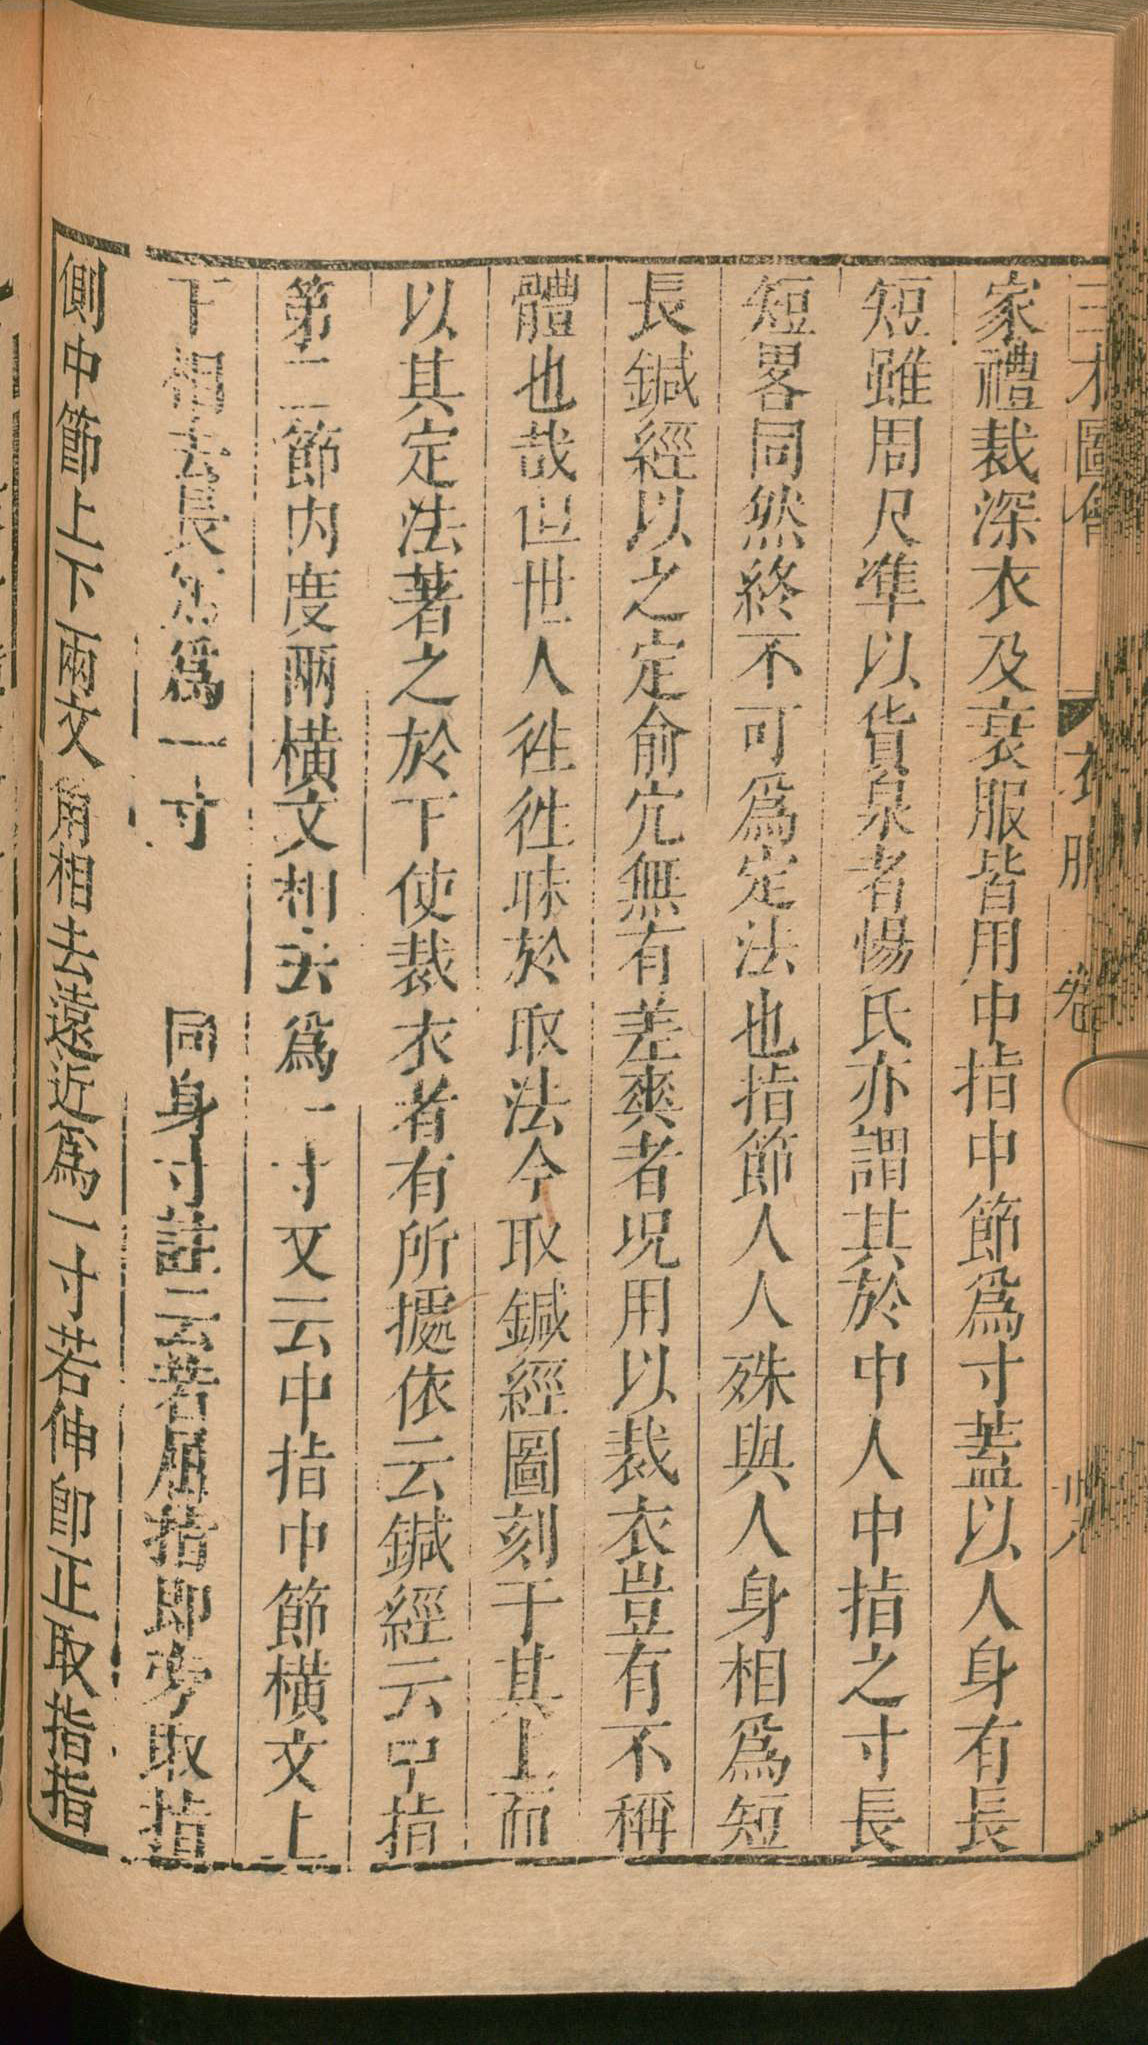 三才圖會 衣服 卷
家禮裁深衣及衰服皆用中指中節爲寸蓋以人身有長
短雖周尺準以貨泉者楊氏亦謂其於中人中指之寸長
短畧同然終不可爲定法也指節人人殊與人身相爲短
長鍼經以之定俞穴無有差爽者况用以裁衣豈有不稱
體也哉但世人徃徃昧於取法今取鍼經圖刻于其上而
以其定法著之於下使裁衣者有所據依云鍼經云中指
第二節内度兩横文相去爲一寸又云中指中節横文上
下相去長短爲一寸 同身寸註云若屈指即旁取指
側中節上下兩文角相去遠近爲一寸若伸卽正取指指